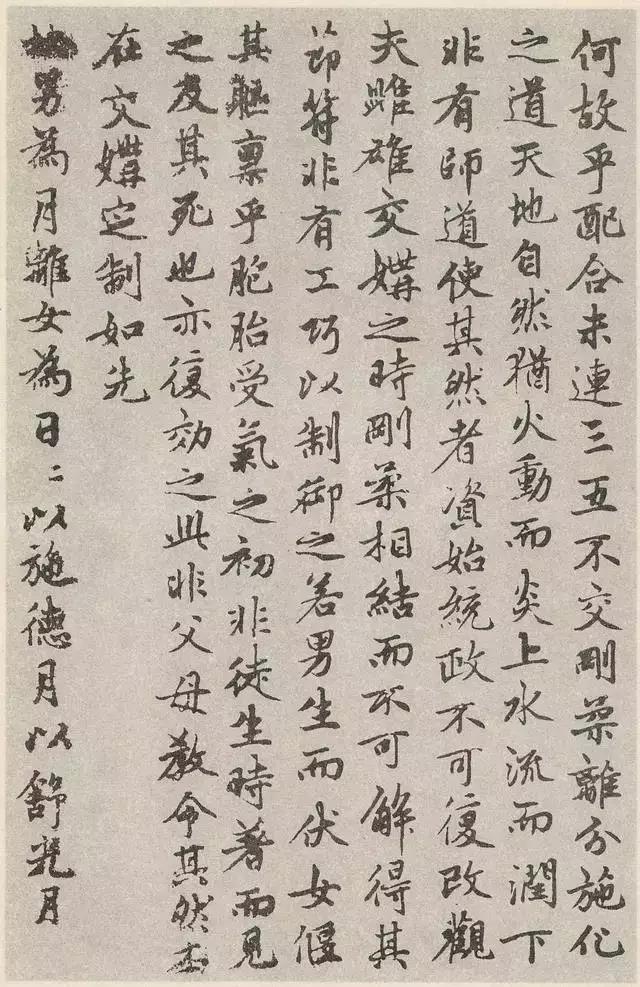 何故乎配合未連三五不交剛柔離分施化
之道天地自然猶火動而炎上水流而潤下
非有師道使其然者資始統政不可復改觀
夫雌雄交媾之時剛柔相結而不可解得其
節符非有工巧以制御之若男生而伏女偃
其軀稟乎胞胎受氣之初非徒生時著而見
之及其死也亦復効之此非父母教令其然本
在交媾定制如先
男為月離女為日〻以施德月以舒光月